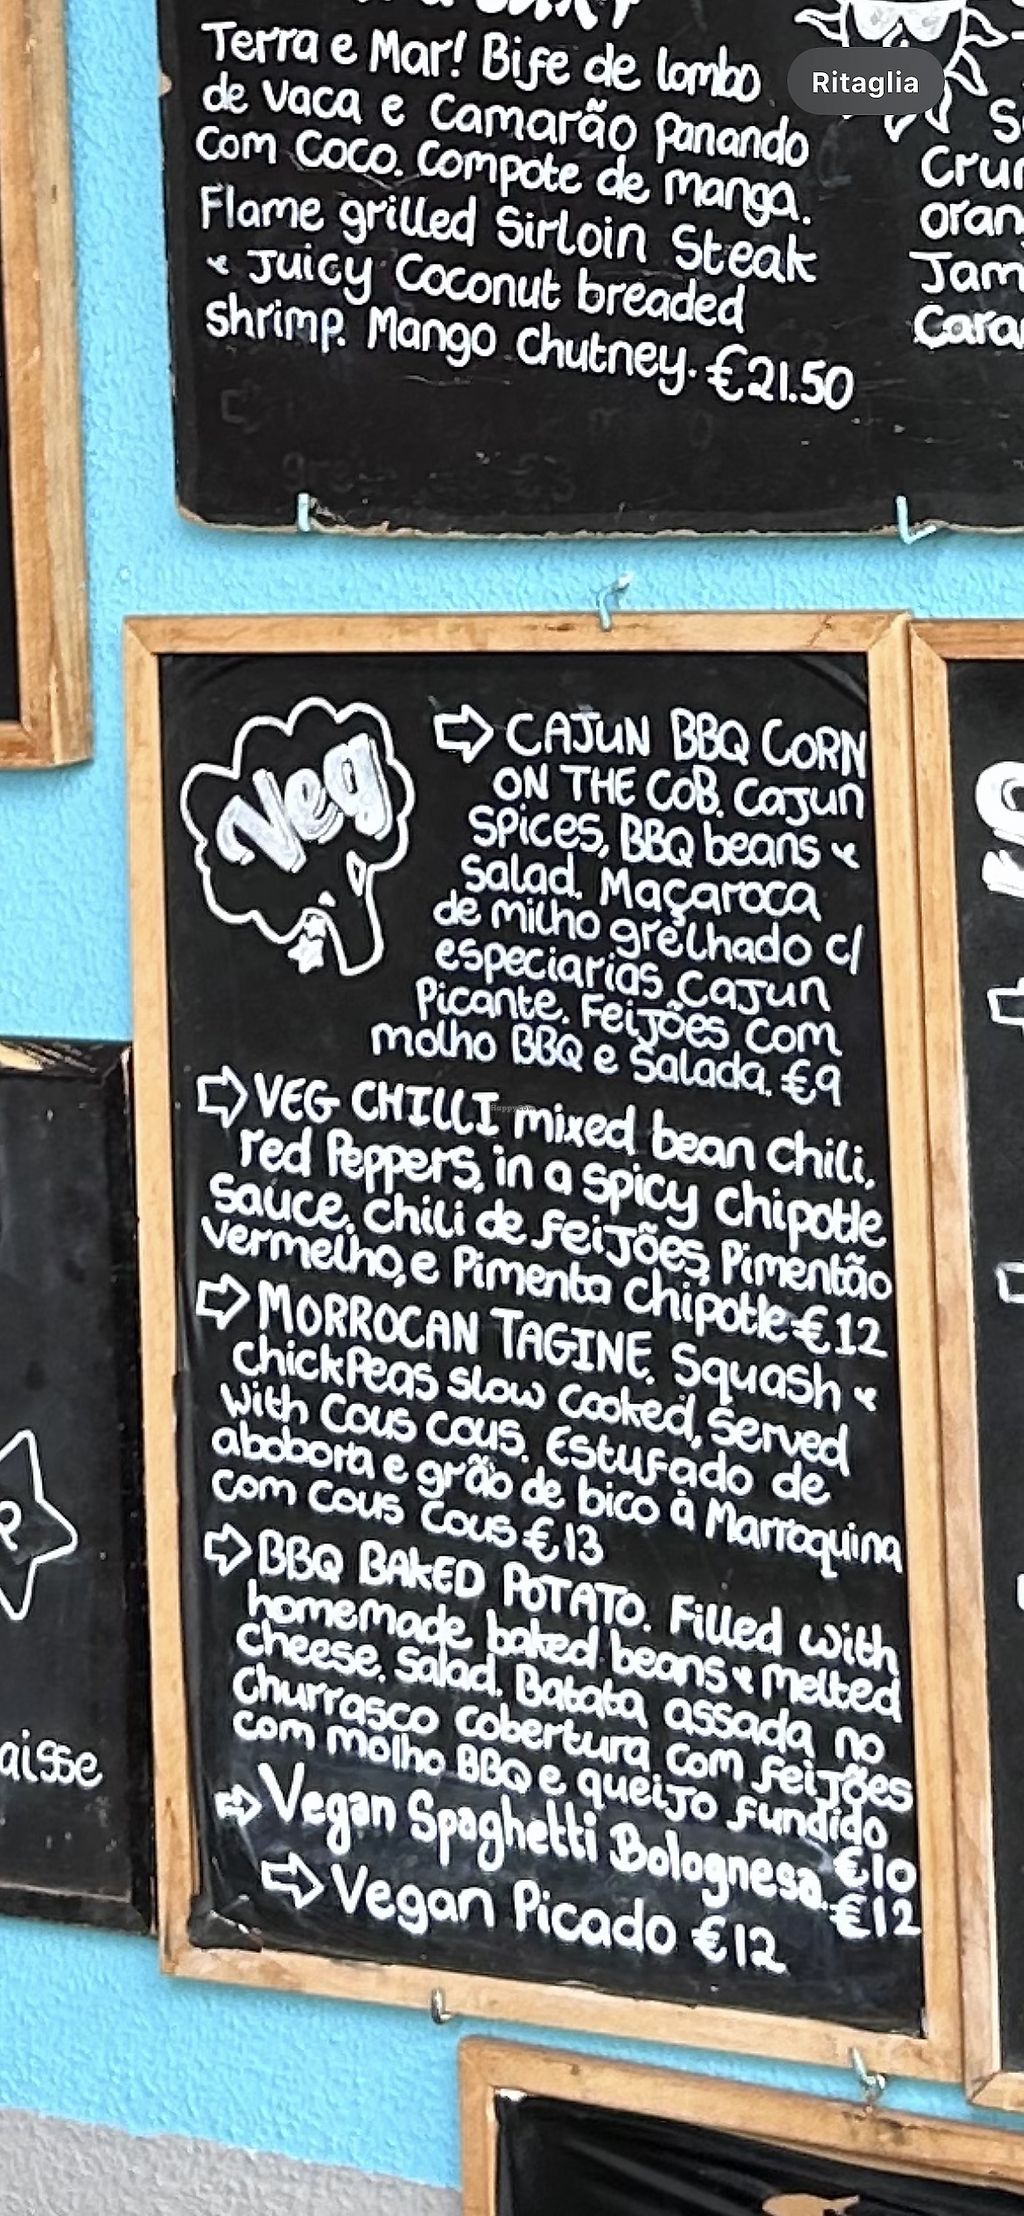 Terra e Mar! Bife de lombo
de vaca e Camarão Panando
com Coco. Compote de manga.
Flame grilled Sirloin Steak
& Juicy Coconut breaded
shrimp. Mango chutney. €21.50
Ritaglia
Crun
oran
Jam
Cara
Veg
CAJUN BBQ CORN
ON THE COB. Cajun
Spices, BBQ beans &
Salad. Maçaroca
de milho grelhado c/
especiarias Cajun
Picante. Feijões com
molho BBQ e Salada. €9
VEG CHILLI mixed bean chili,
red Peppers, in a spicy Chipotle
Sauce. Chili de feijões, Pimentão
vermelho, e Pimenta Chipotle €12
MORROCAN TAGINE. Squash &
ChickPeas slow cooked, served
With Cous cous. Estufado de
abobora e grão de bico à Marroquina
com cous cous €13
BBQ BAKED POTATO. Filled with
homemade baked beans & melted
cheese. salad. Batata assada no
Churrasco cobertura com feijões
com molho BBQ e queijo fundido
€10
Vegan Spaghetti Bolognesa. €12
Vegan Picado €12
aisse